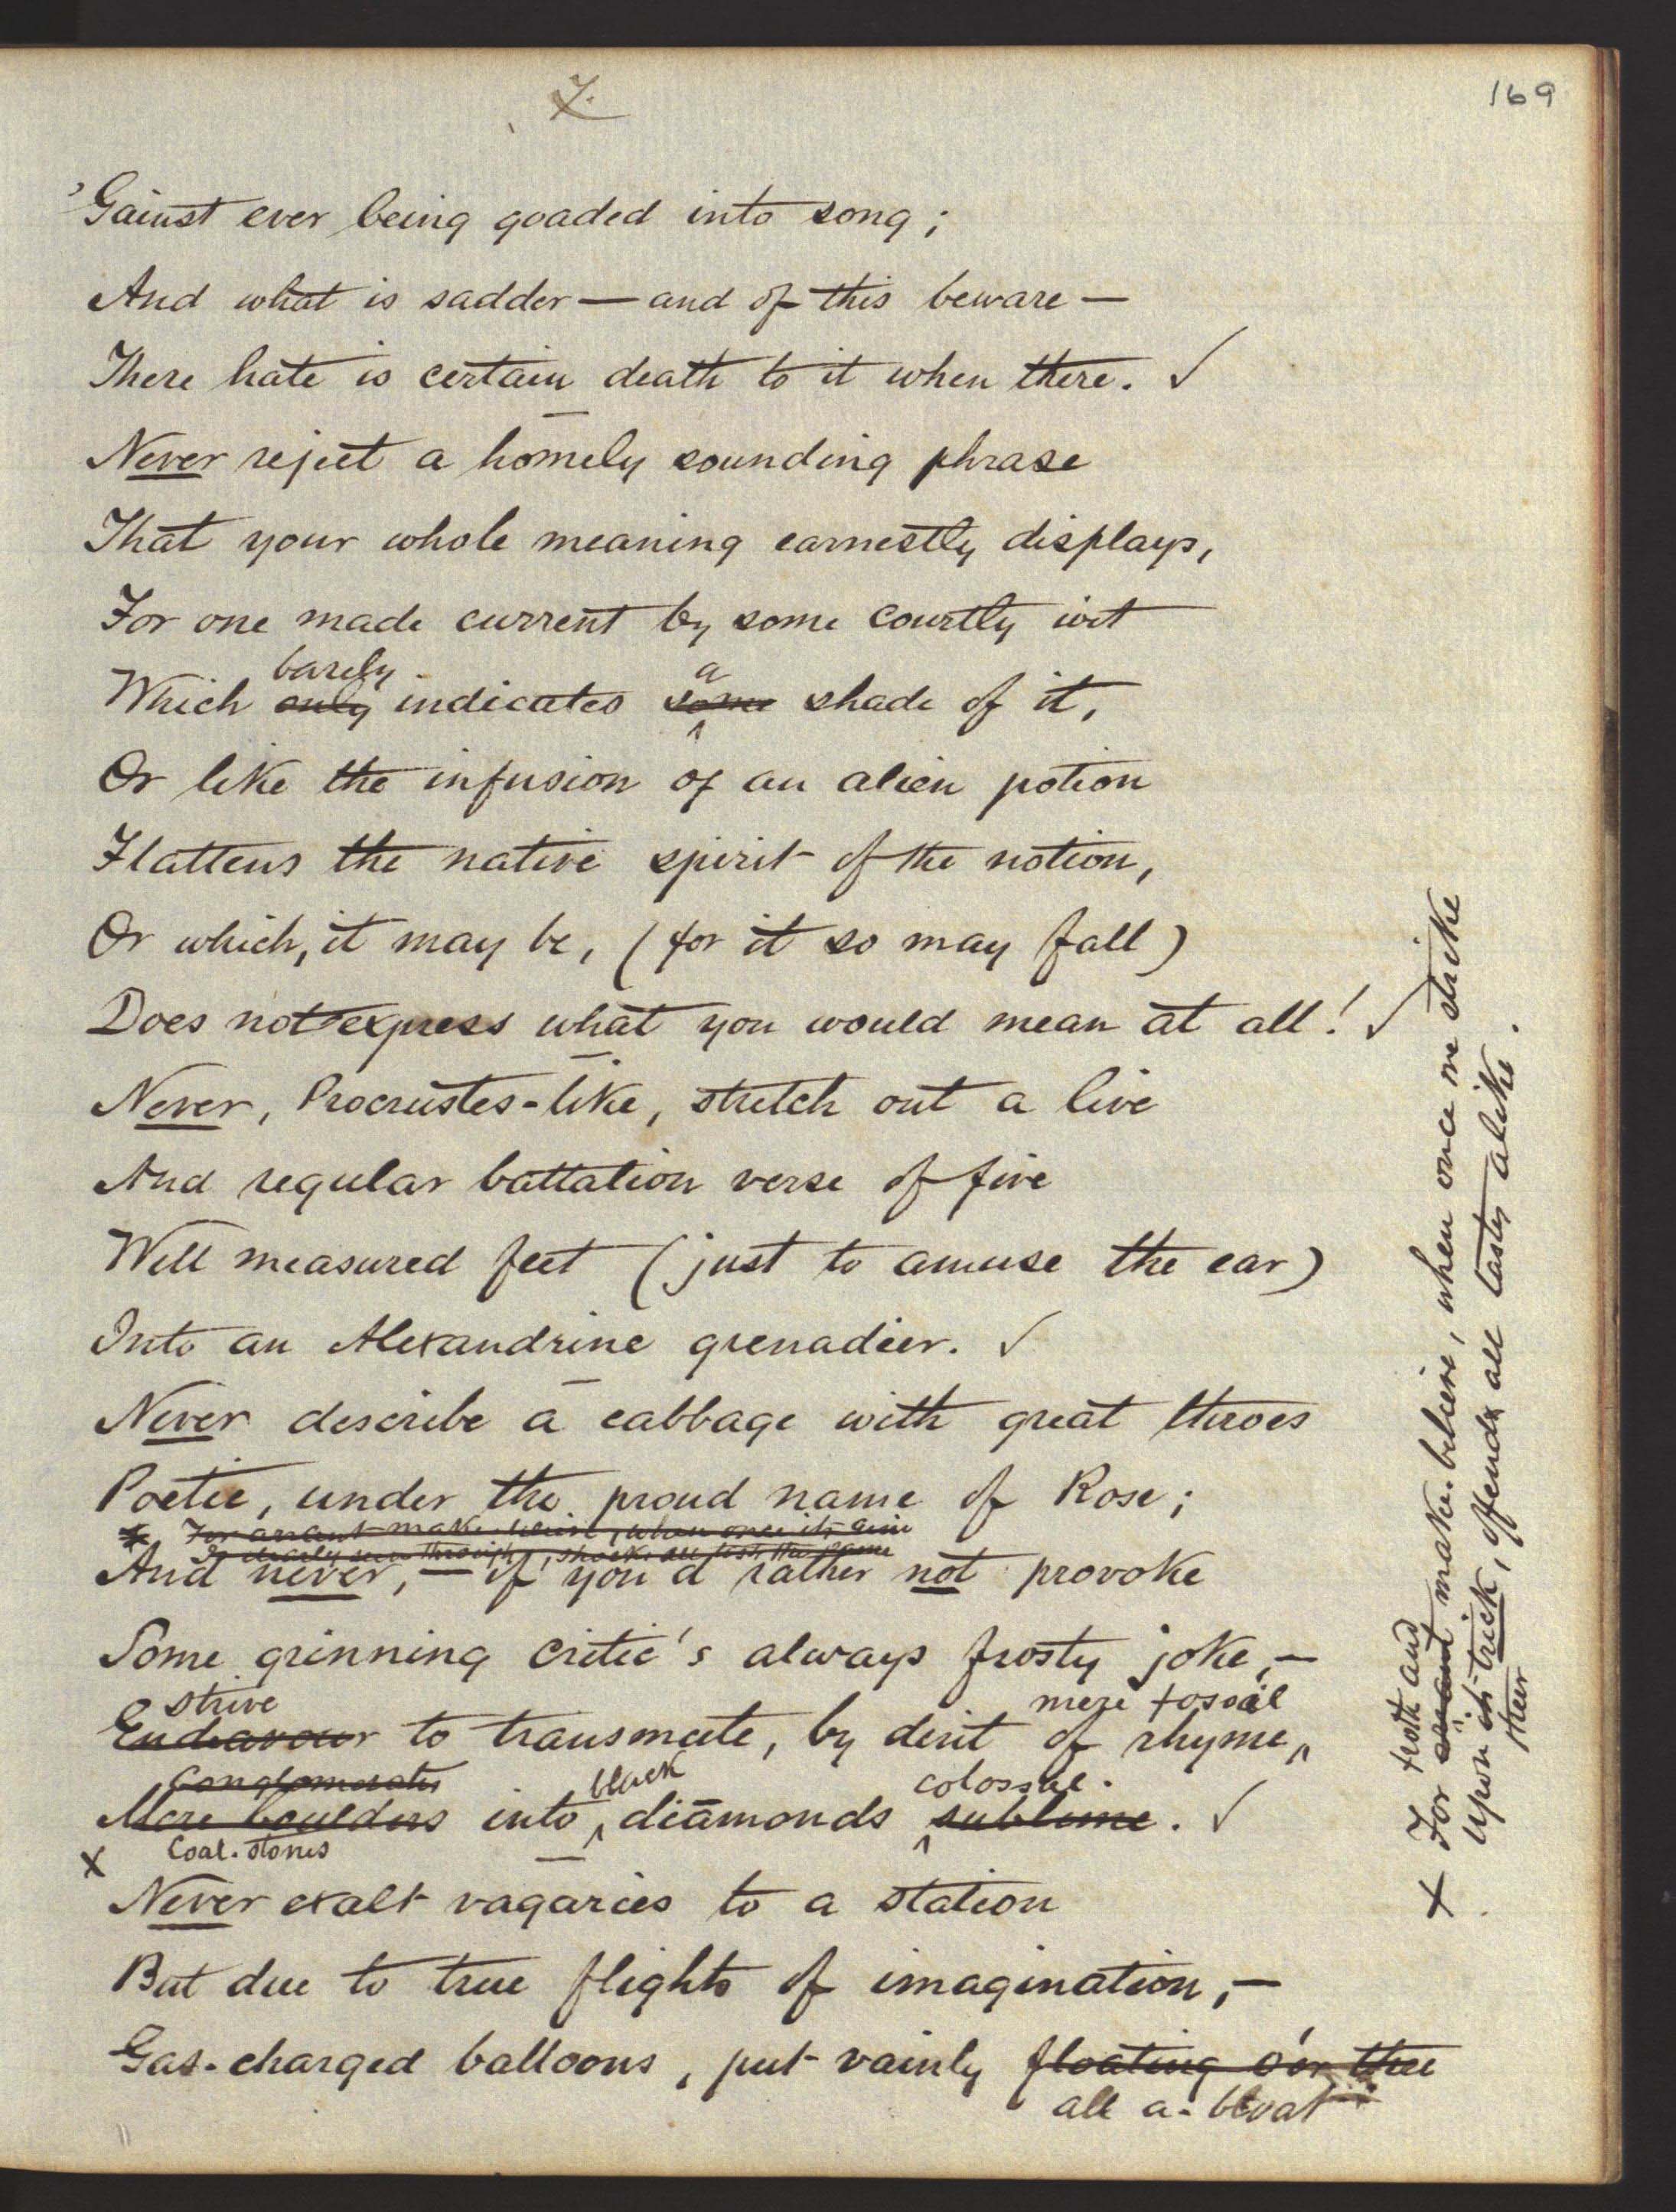 7.
169
'Gainst ever being goaded into song;
And what is sadder — and of this beware —
There hate is certain death to it when there. ✓
Never reject a homely sounding phrase
That your whole meaning earnestly displays,
For one made current by some courtly wit
barely a
Which only indicates some shade of it,
Or like the infusion of an alien potion
Flattens the native spirit of the notion,
Or which, it may be, (for it so may fall)
Does not express what you would mean at all! ✓
Never, Procrustes-like, stretch out a live
And regular battalion verse of five
Well measured feet (just to amuse the ear)
Into an Alexandrine grenadier. ✓
Never describe a cabbage with great throes
Poetic, under the proud name of Rose;
For arrant make-believe, when once its aim
Is clearly seen through, shocks all
And never, — if you'd rather not provoke
Some grinning critic's always frosty joke, —
strive mere fossil
Endeavour to transmute, by dint of rhyme,
Conglomerates black colossal.
Mere boulders into diamonds sublime. ✓
x Coal-stones
Never exalt vagaries to a station
But due to true flights of imagination, —
Gas-charged balloons, put vainly floating o'er thee
all a-bloat
froth and
x For make-believe, when once we strike
Upon its trick, offends all tastes alike.
their